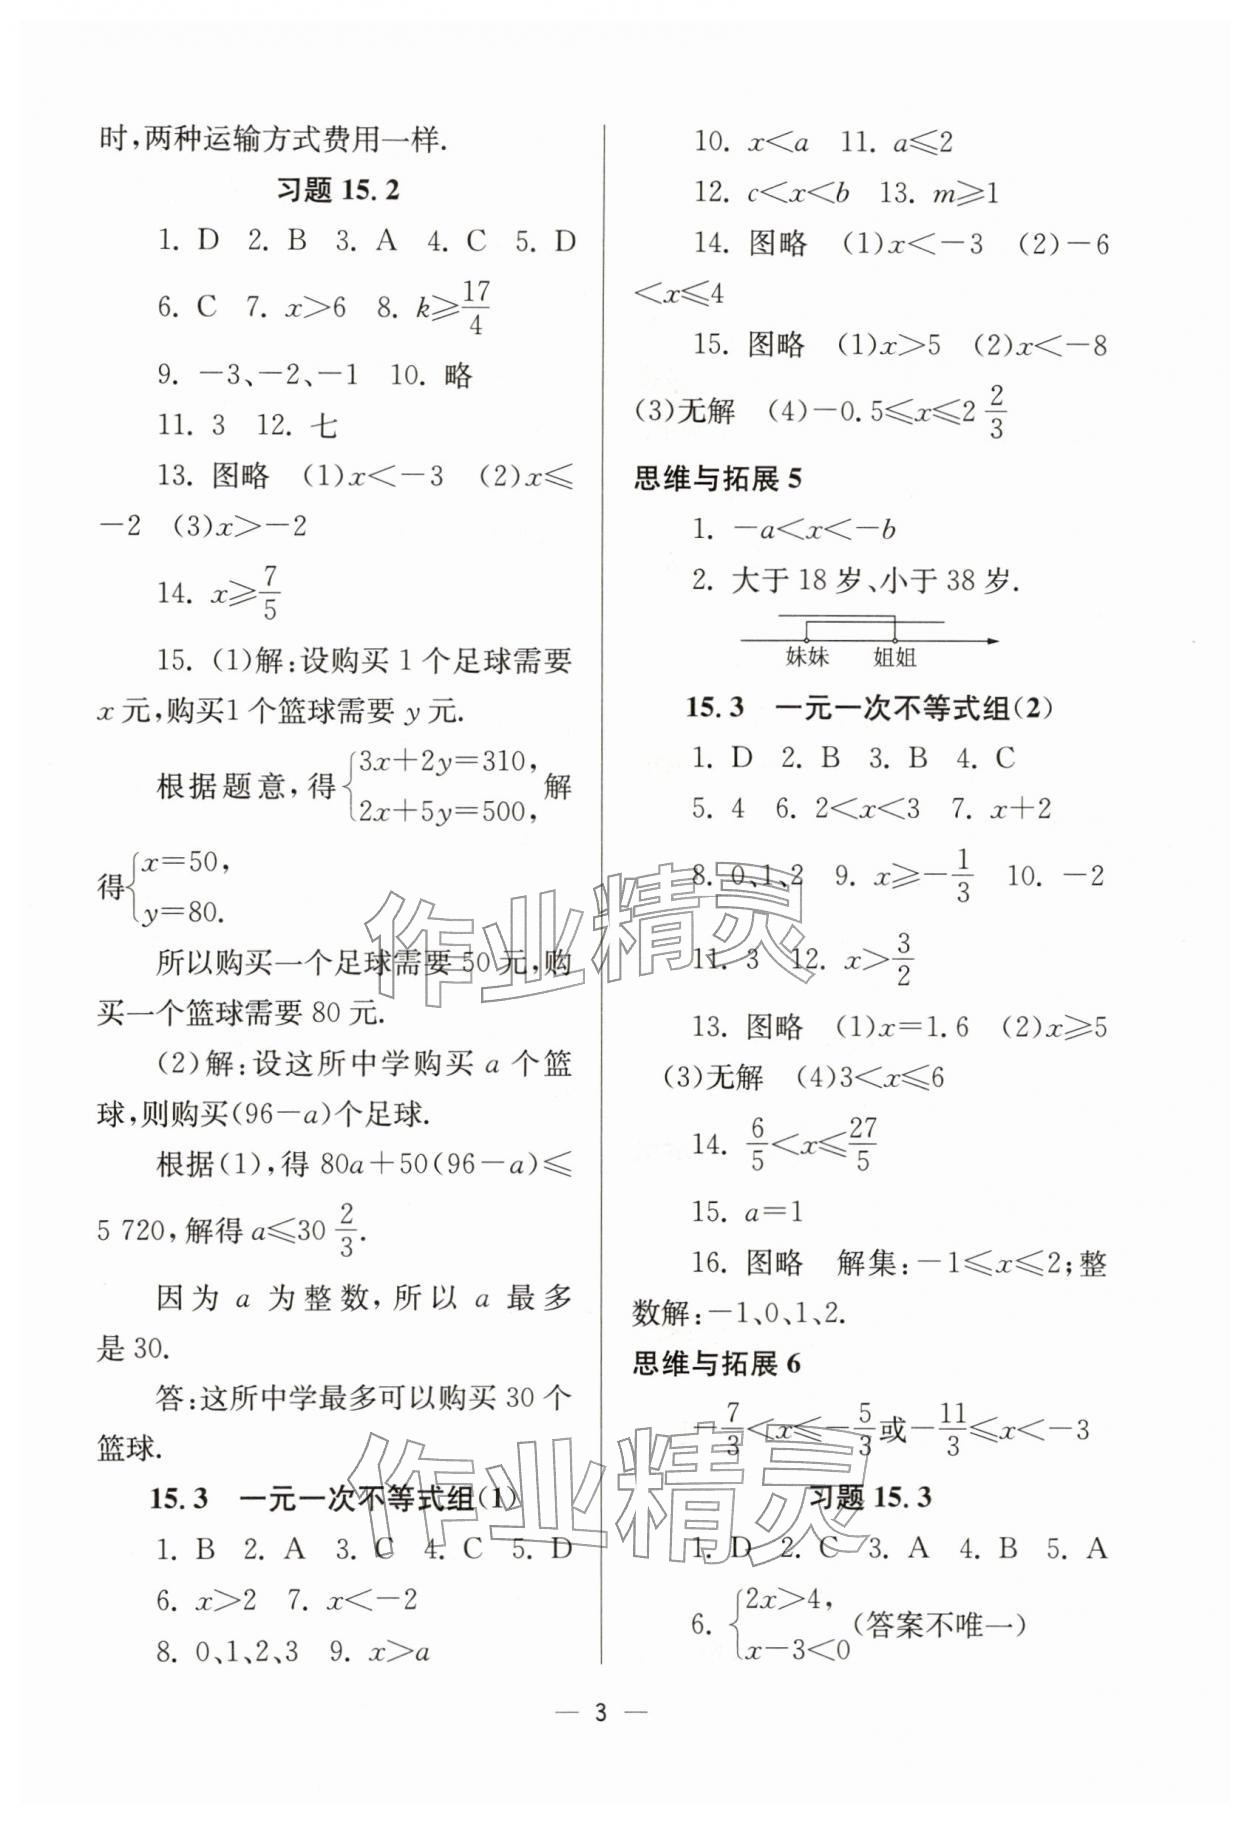 时,两种运输方式费用一样.
习题 15.2
1. D 2. B 3. A 4. C 5. D
6. C 7. x>6 8. k≥17/4
9. -3、-2、-1 10. 略
11. 3 12. 七
13. 图略 (1)x<-3 (2)x≤
-2 (3)x>-2
14. x≥7/5
15. (1)解:设购买 1 个足球需要
x 元,购买1 个篮球需要 y 元.
根据题意,得{3x+2y=310, 2x+5y=500,解
得{x=50, y=80.
所以购买一个足球需要 50 元,购
买一个篮球需要 80 元.
(2)解:设这所中学购买 a 个篮
球,则购买(96-a)个足球.
根据(1),得 80a+50(96-a)≤
5 720,解得 a≤30 2/3.
因为 a 为整数,所以 a 最多
是 30.
答:这所中学最多可以购买 30 个
篮球.
15.3 一元一次不等式组(1)
1. B 2. A 3. C 4. C 5. D
6. x>2 7. x<-2
8. 0、1、2、3 9. x>a
10. x<a 11. a≤2
12. c<x<b 13. m≥1
14. 图略 (1)x<-3 (2)-6
<x≤4
15. 图略 (1)x>5 (2)x<-8
(3)无解 (4)-0.5≤x≤2 2/3
思维与拓展 5
1. -a<x<-b
2. 大于 18 岁、小于 38 岁.
妹妹 姐姐
15.3 一元一次不等式组(2)
1. D 2. B 3. B 4. C
5. 4 6. 2<x<3 7. x+2
8. 0、1、2 9. x≥-1/3 10. -2
11. 3 12. x>3/2
13. 图略 (1)x=1.6 (2)x≥5
(3)无解 (4)3<x≤6
14. 6/5<x≤27/5
15. a=1
16. 图略 解集:-1≤x≤2;整
数解:-1、0、1、2.
思维与拓展 6
-7/3<x≤-5/3或-11/3≤x<-3
习题 15.3
1. D 2. C 3. A 4. B 5. A
6. {2x>4, x-3<0(答案不唯一)
— 3 —
作业精灵
作业精灵